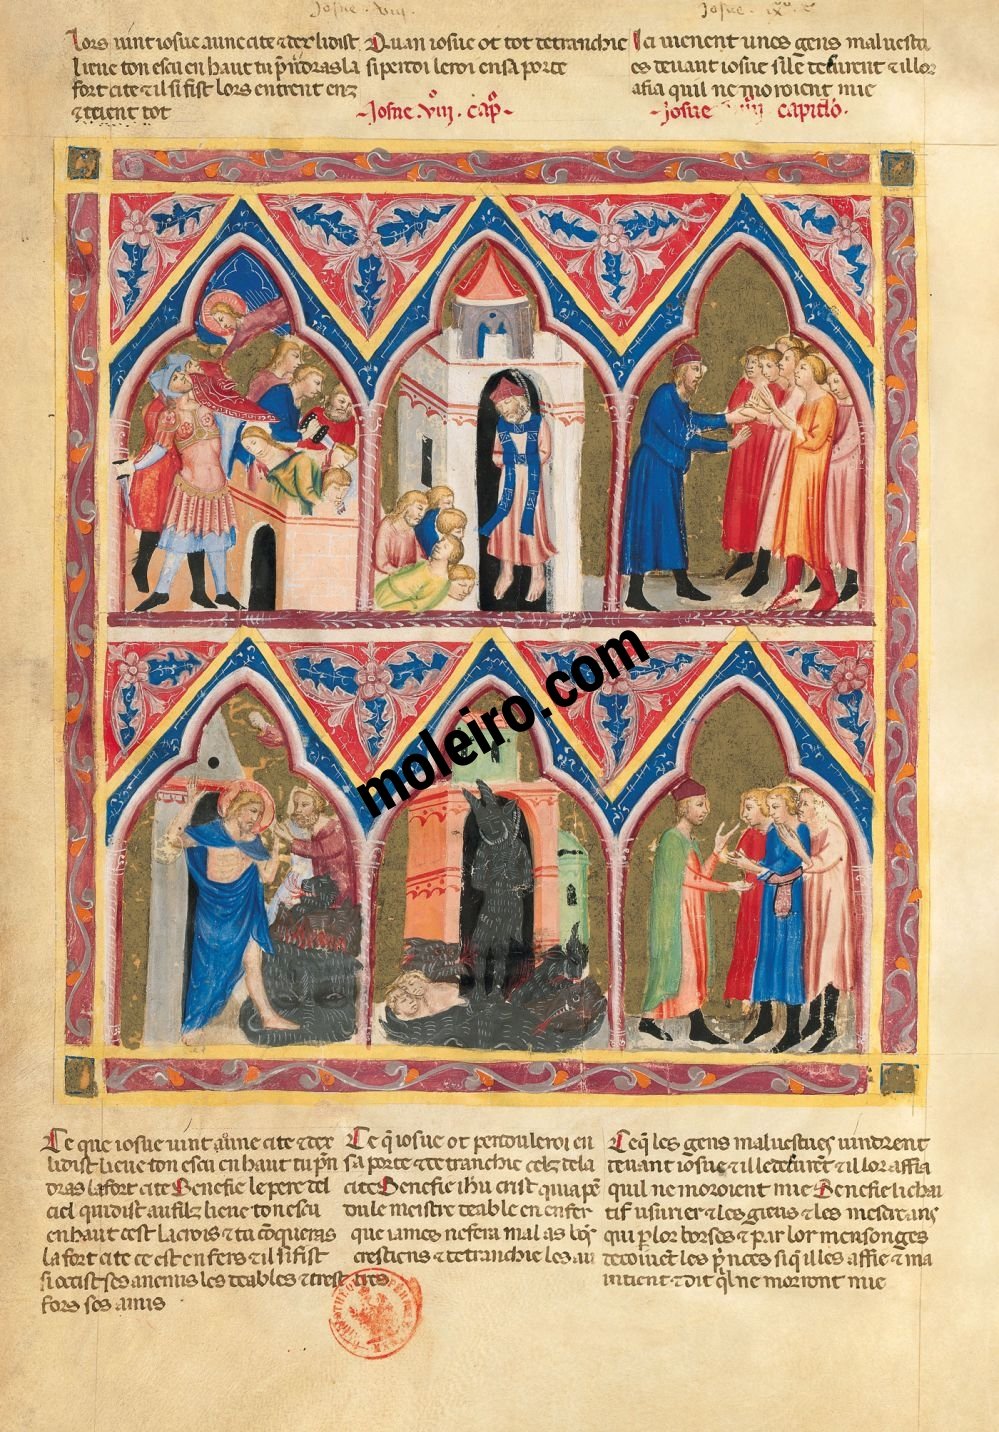 Josue . viij .
Josue . ix
Lors vint iosue a une cite & dex li dist
lieve ton escu en haut tu prendras la
fort cite & il si fist lors entrent enz
& teient tot
Quan iosue ot tot detranchie
si pendi le roi en sa porte
Josue . viij . cap
Ici vienent unes gens malvesti
es devant iosue
afia quil ne moroient mie
Josue capitlo.
moleiro.com
Ce que iosue vint a une cite & dex
li dist lieve ton escu en haut tu pren
dras la fort cite Senefie le pere del
ciel qui dist au filz lieve ton escu
en haut cest la crois & tu conqueras
la fort cite ce est enfers & il si fist
si occist ses anemis les deables & trest
fors ses amis
Ce q iosue ot pendu le roi en
sa porte & detranchie celz de la
cite Senefie ihu crist qui a pe
du le meistre deable en enfer
que iames ne fera mal as bons
crestiens & detranchie les au
tres
Ce q les gens malvestues vindrent
devant iosue & il lor affia
quil ne moroient mie Senefie li chai
tif usurier & les gieus & les mescreans
qui por lor borses & par lor mensonges
decoivent les princes si q il les affie & ma
intient & dit ql ne morront mie